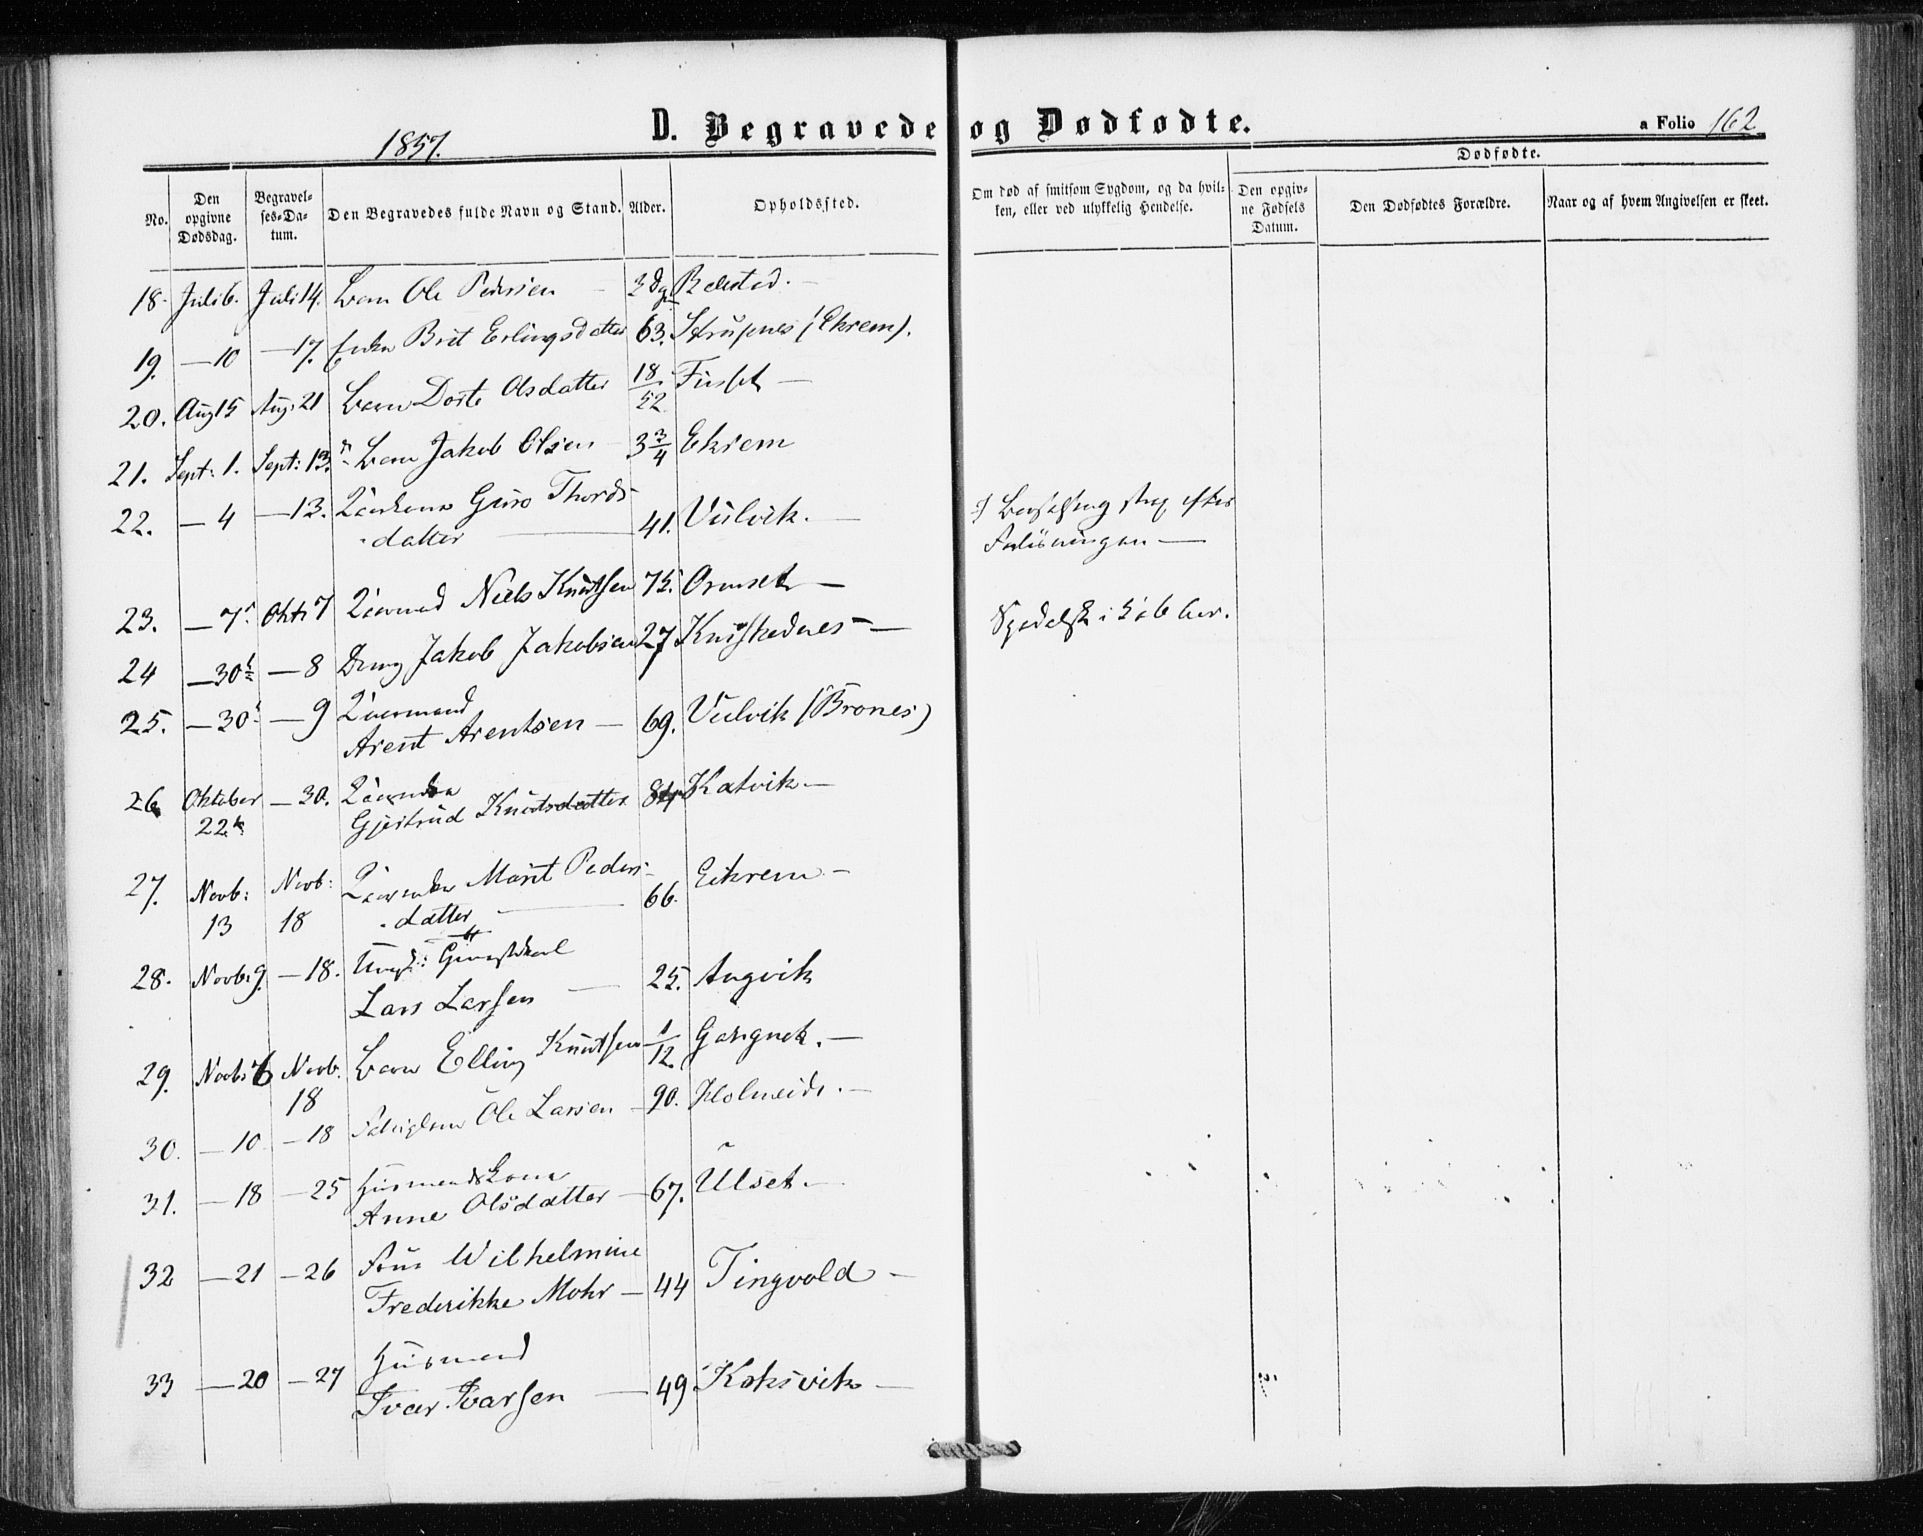 1857.
D. Begravede og Dødfødte.
a Folio 162
No.
Den opgivne Dødsdag.
Begravelses-Datum.
Den Begravedes fulde Navn og Stand.
Alder.
Opholdssted.
Om død af smitsom Sygdom, og da hvilken, eller ved ulykkelig Hendelse.
Dødfødte.
Den opgivne Fødsels Datum.
Den Dødfødtes Forældre.
Naar og af hvem Angivelsen er skeet.
18. Juli 6. Juli 14. Barn Ole Pedersen
19. — 10 — 17. Enke Brit Erlingsdatter 63. Strupnes (Ekrem).
20. Aug 15 Aug: 21 Barn Dorte Olsdatter 18/52 Furset —
21. Sept: 1. Sept: 13. Barn Jakob Olsen 3 3/4 Ekrem
22. — 4 — 13. Guro Thords-
datter — 41. Vulvik. —
strax efter
Forløsningen —
23. — 7 Okt: 7 Niels Knutsen 75. Ormset —
24 — 30 — 8 Dreng Jakob Jakobsen 27 —
Spedalsk i 5 à 6 Aar.
25. — 30 — 9
Arent Arentsen — 69. Vulvik (Brones)
26 Oktober — 30.
22
Gjertrud Knutsdatter 84 Katvik —
27. Novb: Novb: Marit Peders- 66. Eikrem —
13 18 datter
28. Novb: 9. — 18. Ungk:
Lars Larsen — 25. Angvik
29. Novb: 6 Novb. Barn Elling Knutsen 1/12
18
30. — 10 — 18 Ole Larsen — 90. Holmeide. —
31. — 18 — 25 Husmandskone
Anne Olsdatter — 67. Ulset. —
32 — 21 — 26 Fru Wilhelmine
Frederikke Mohr — 44 Tingvold —
33 — 20 — 27 Husmand
Ivar Ivarsen — 49 Koksvik —